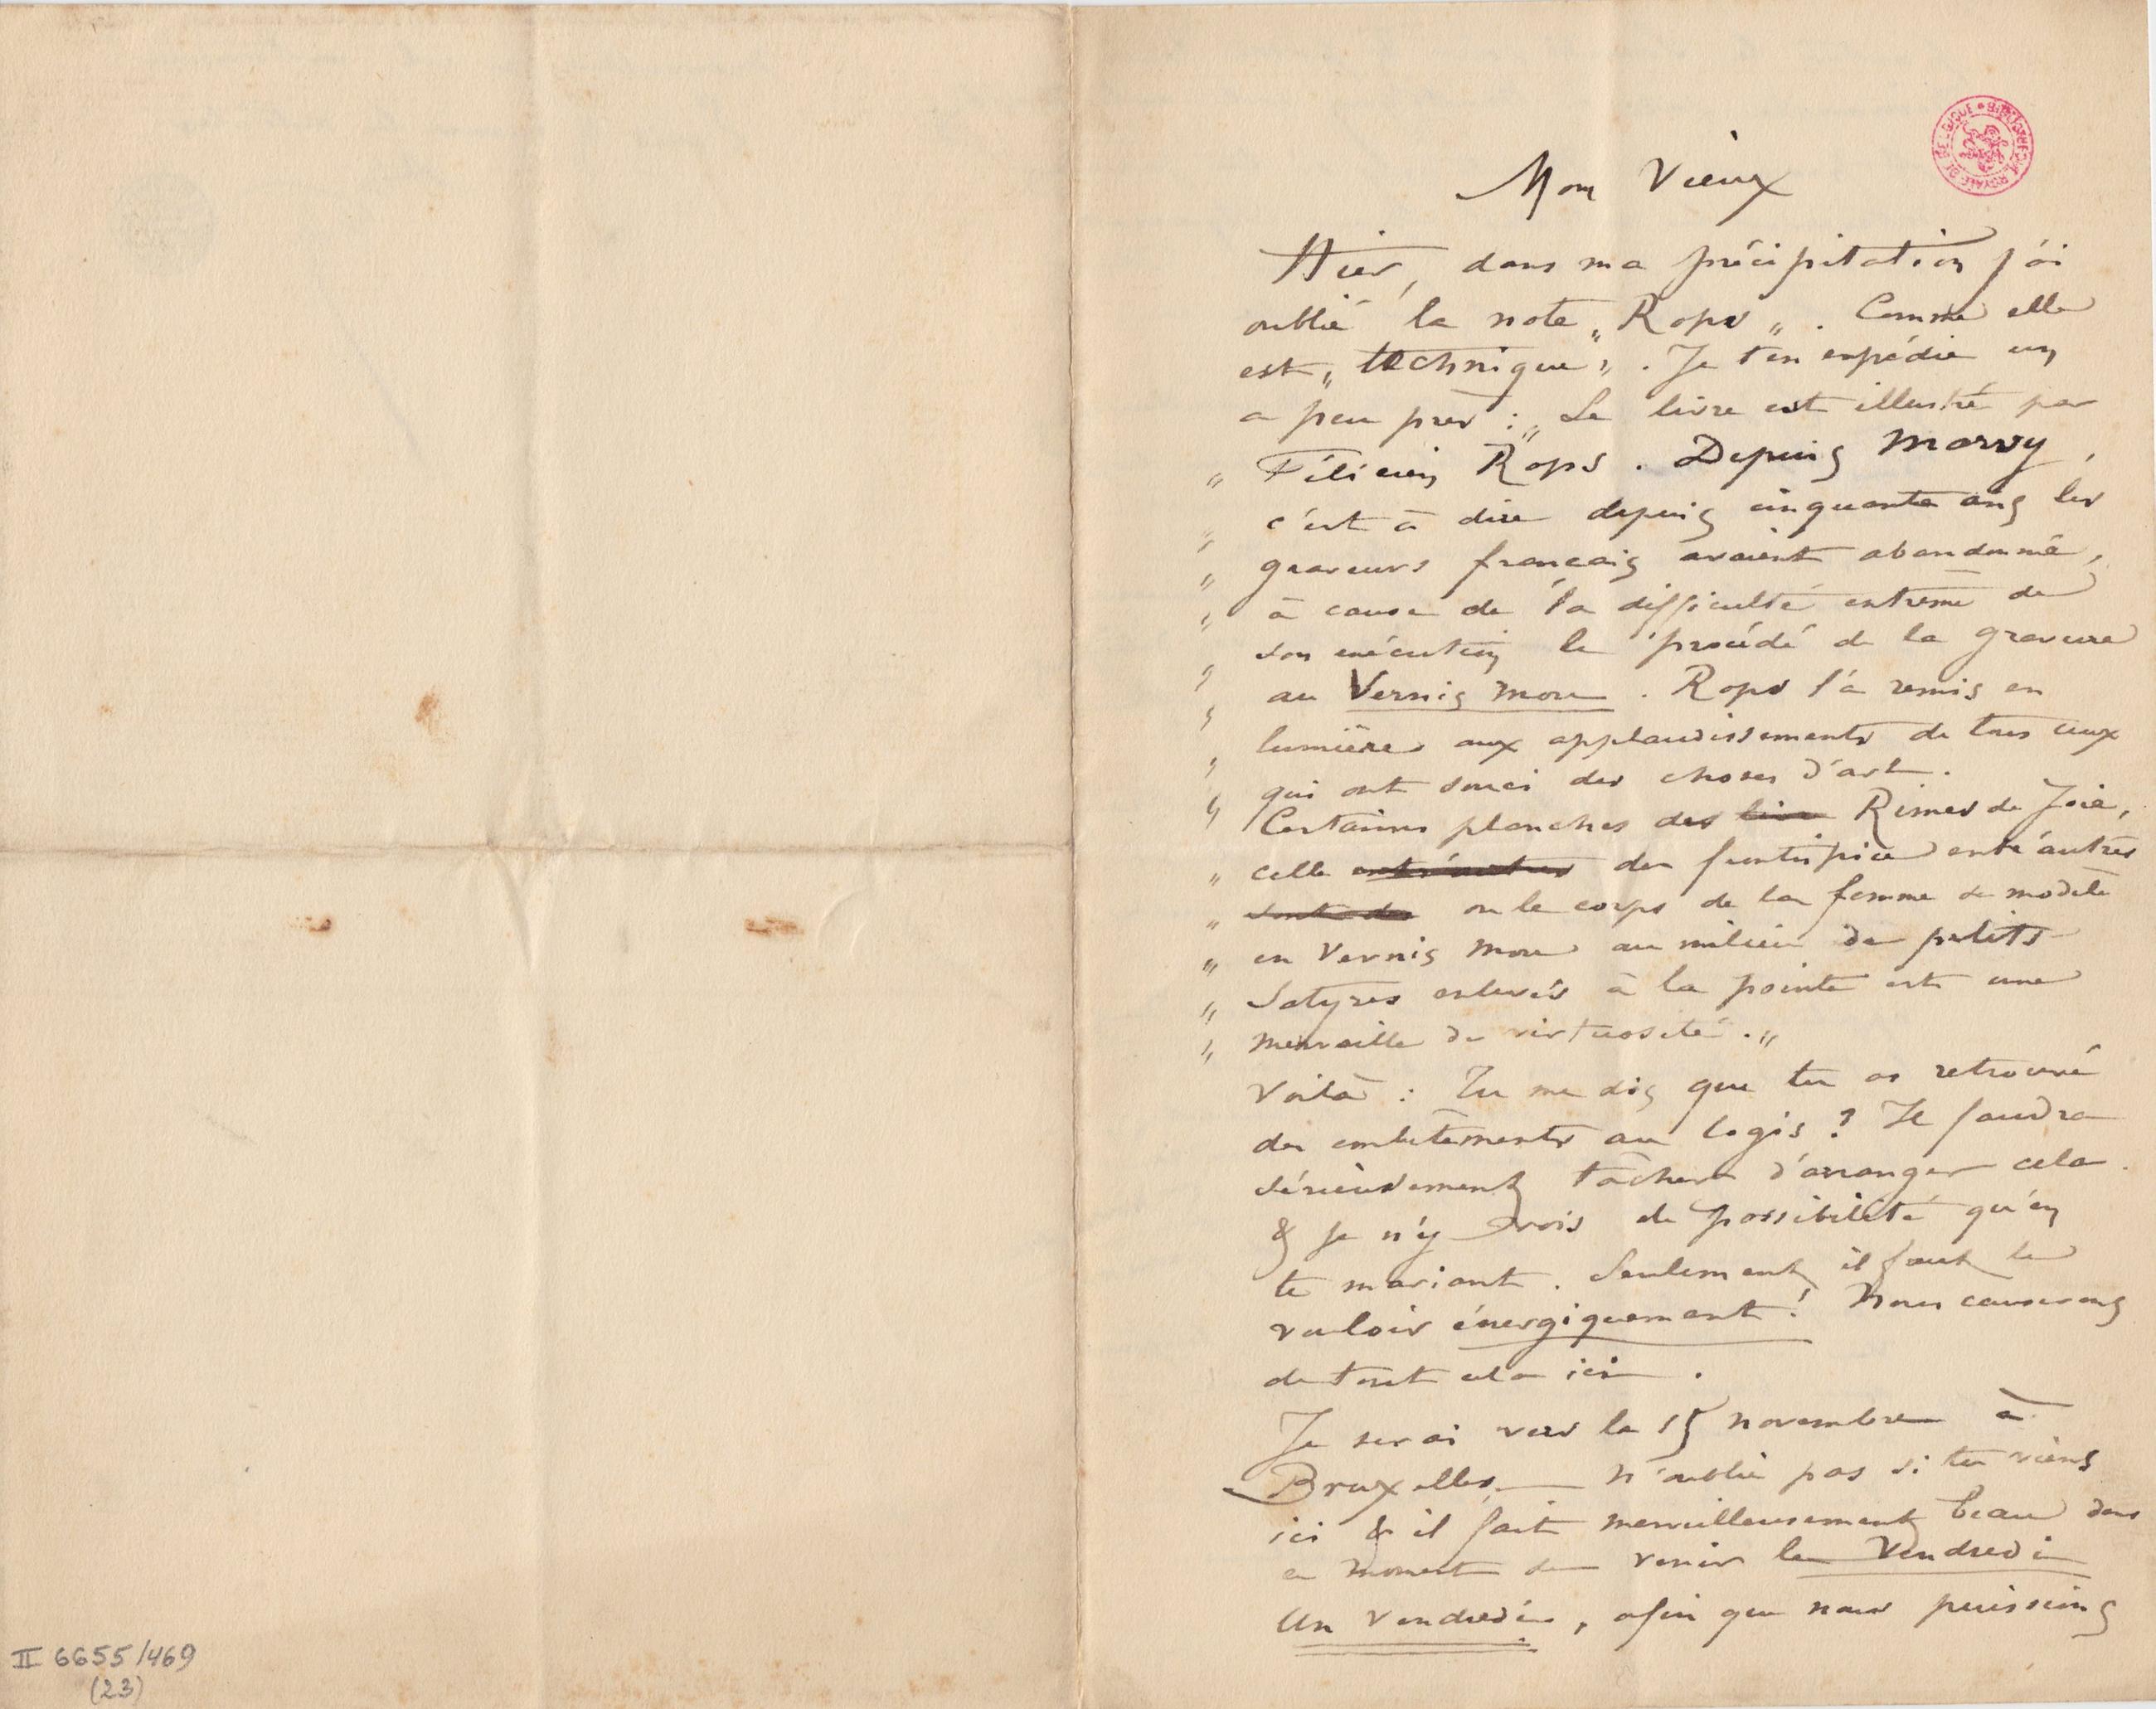 BIBLIOTHEQUE ROYALE DE BELGIQUE
Mon Vieux
Hier, dans ma précipitation j'ai
oublié la note „Rops„. Comme elle
est „technique„. Je t'en expédie un
a peu près : „Le livre est illustré par
„ Félicien Rops. Depuis Marvy,
„ c'est à dire depuis cinquante ans les
„ graveurs français avaient abandonné,
„ à cause de la difficulté extrême de
„ son exécution le procédé de la gravure
„ au Vernis mou. Rops l'a remis en
„ lumière aux applaudissements de tous ceux
„ qui ont souci des choses d'art.
„ Certaines planches des livre Rimes de Joie,
„ celle entr'autres du frontispice entr'autres
„ sont des ou le corps de la femme se modèle
„ en Vernis mou au milieu de petits
„ Satyres enlevés à la pointe est une
„ merveille de virtuosité.„
Voilà : Tu me dis que tu as retrouvé
des embêtements au logis ? Il faudra
sérieusement tâcher d'arranger cela.
& Je n'y vois de possibilité qu'en
te mariant. Seulement il faut le
vouloir énergiquement! Nous causerons
de tout cela ici.
Je serai vers le 15 novembre à
Bruxelles, — n'oublie pas si tu viens
ici & il fait merveilleusement beau dans
ce moment de venir le Vendredi
Un Vendredi, afin que nous puissions
II 6655/469
(23)